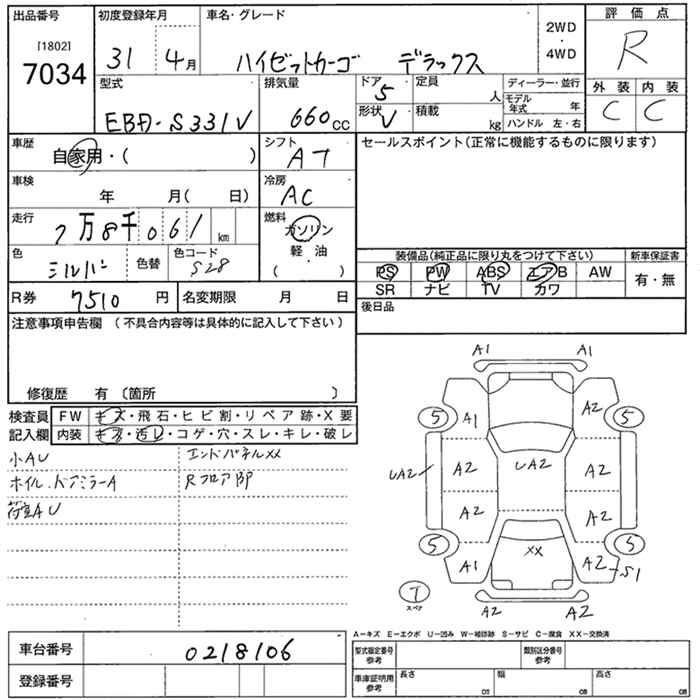 出品番号 初度登録年月 車名・グレード 評価点
[1802]
7034
31 4月 ハイゼットカーゴ デラックス
2WD
・
4WD
R
型式 排気量 ドア 定員 ディーラー・並行 外装 内装
EBD-S331V 660cc 5 人 モデル年式 年 C C
形状 V 積載 kg ハンドル 左・右
車歴 自家用・( ) シフト AT セールスポイント(正常に機能するものに限ります)
車検 年 月( 日) 冷房 AC
走行 7万8千061km 燃料 ガソリン
軽・油
( )
色 シルバー 色替 色コード S28
装備品(純正品に限り丸をつけて下さい) 新車保証書
PS PW ABS エアB AW 有・無
SR ナビ TV カワ
R券 7510円 名変期限 月 日 後日品
注意事項申告欄(不具合内容等は具体的に記入して下さい)
修復歴 有〔箇所 〕
検査員 FW キズ・飛石・ヒビ割・リペア跡・X要
記入欄 内装 キズ・汚レ・コゲ・穴・スレ・キレ・破レ
小AU エンドパネルXX
ホイル、ドアミラーA Rフロア部
荷室AU
A1 A1
5 A1 A2 5
UA2 A2 UA2 A2
A2 A2
5 A1 XX A2 S1 5
T
スペア
A2 A2
A-キズ E-エクボ U-凹み W-補修跡 S-サビ C-腐食 XX-交換済
車台番号 0218106 型式指定番号 参考 類別区分番号 参考
登録番号 車庫証明用 参考 長さ 幅 高さ